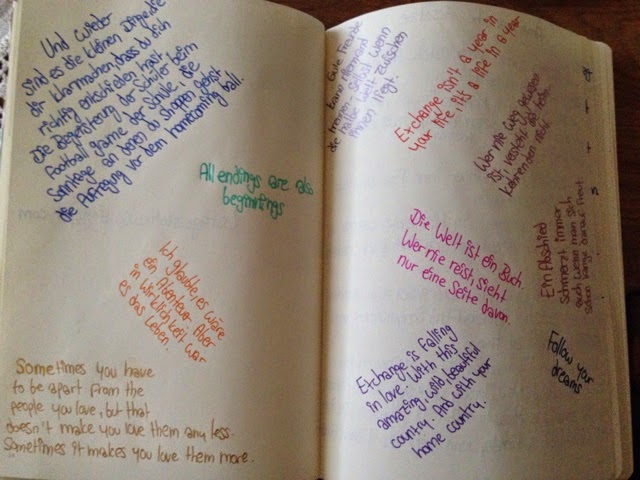 Und wieder
sind es die kleinen Dinge die
dir klarmachen, dass du dich
richtig entschieden hast.
Die Begeisterung der Schüler beim
Football game der Schule, die
Samstage an denen du shoppen gehst
die Aufregung vor dem homecoming ball.
All endings are also
beginnings
Ich glaubte, es wäre
ein Abenteuer. Aber
in Wirklichkeit war
es das Leben.
Sometimes you have
to be apart from the
people you love, but that
doesn't make you love them any less.
Sometimes it makes you love them more.
Gute Freunde
kann niemand
trennen. Selbst wenn
die halbe Welt zwischen
ihnen liegt.
Exchange isn't a year in
your life it's a life in a year
Wer nie weg gewesen
ist, versteht die
nicht
Die Welt ist ein Buch.
Wer nie reist, sieht
nur eine Seite davon.
Ein Abschied
schmerzt immer,
auch wenn man sich
schon lange darauf freut
Exchange is falling
in love. With this
amazing, wild, beautiful
country. And with your
home country.
Follow your
dreams